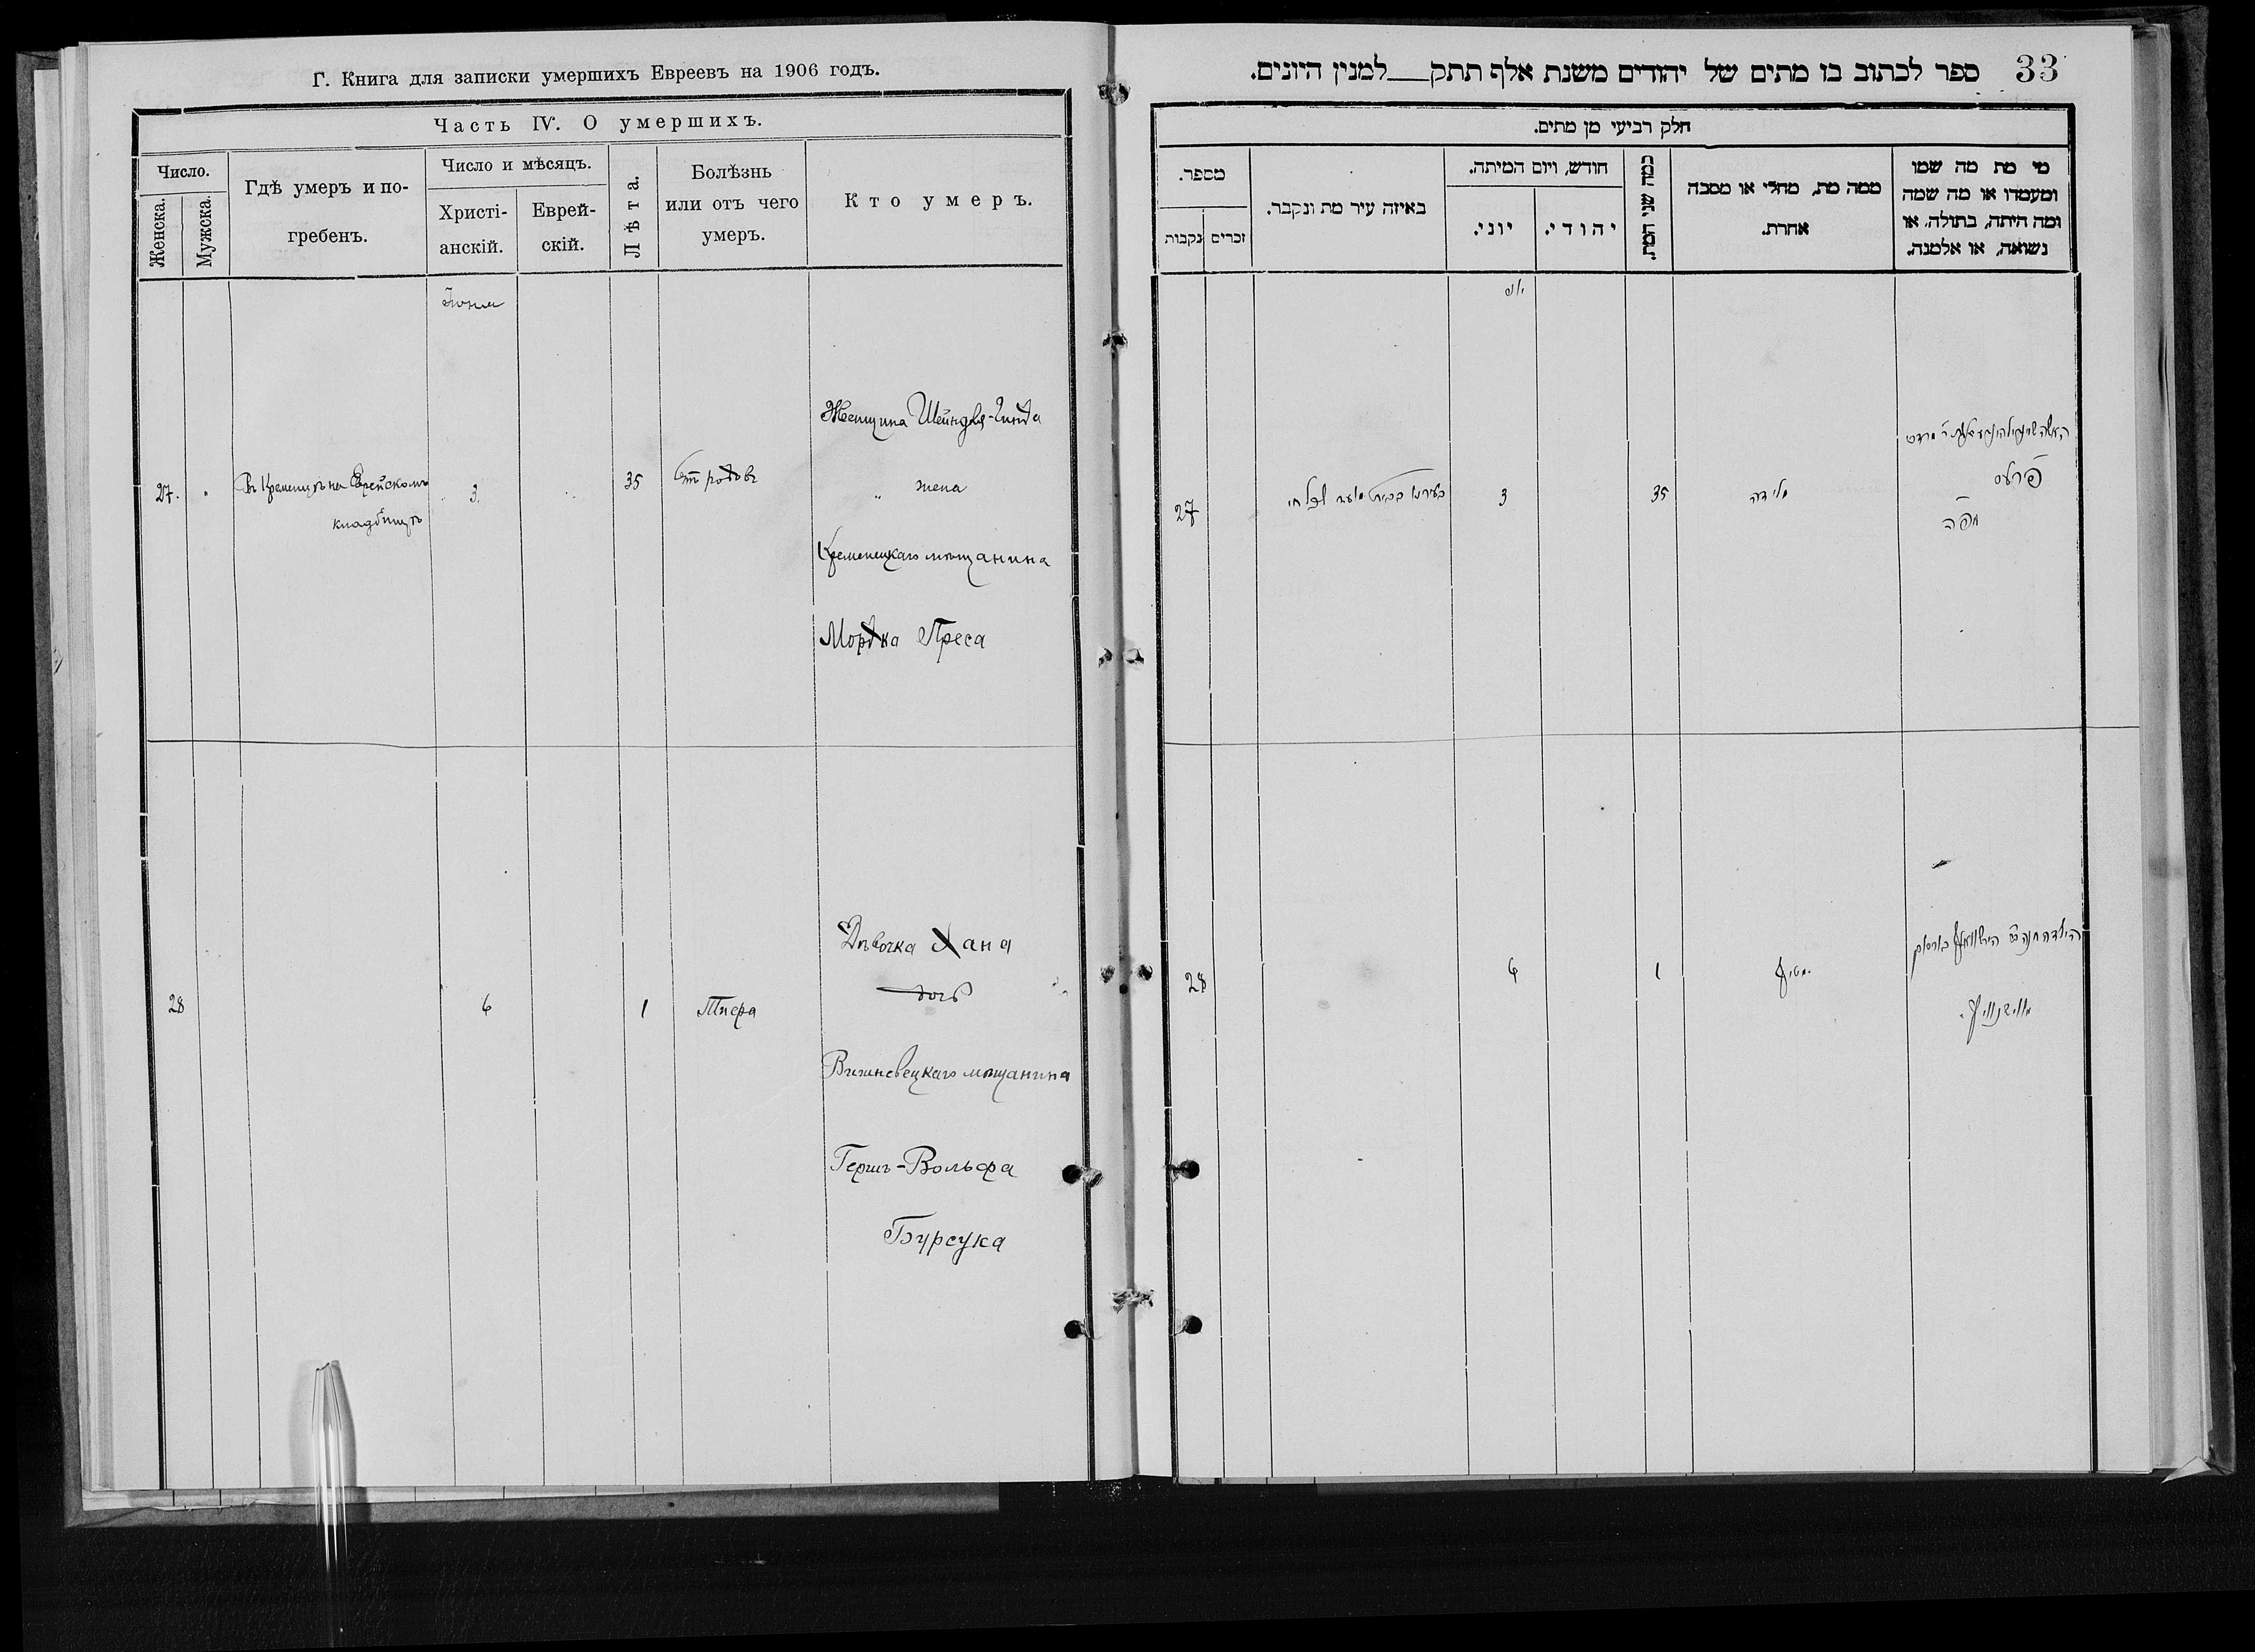 Г. Книга для записки умершихъ Евреевъ на 1906 годъ.
Часть IV. О умершихъ.
Число.
Женска.
Мужска.
Гдѣ умеръ и по-
гребенъ.
Число и мѣсяцъ.
Христі-
анскій.
Еврей-
скій.
Лѣта.
Болѣзнь
или отъ чего
умеръ.
Кто умеръ.
Іюня
27.
Въ Кременцѣ на Еврейскомъ
кладбищѣ
3.
35
Отъ родовъ
Женщина Шейндля-Гинда
" жена
Кременецкаго мѣщанина
Мордка Преса
28
6
1
Тифа
Дѣвочка Хана
дочь
Вишневецкаго мѣщанина
Гершъ-Вольфа
Бурсука
33
ספר לכתוב בו מתים של יהודים משנת אלף תתק למנין היונים.
חלק רביעי מן מתים.
מספר.
נקבות
זכרים
באיזה עיר מת ונקבר.
חודש, ויום המיתה.
יוני.
יהודי.
כמה שני המת.
ממה מת, מחלי או מסבה
אחרת.
מי מת מה שמו
ומעמדו או מה שמה
ומה היתה, בתולה, או
נשואה, או אלמנה.
27
3
35
מלידה
מפה
28
6
1